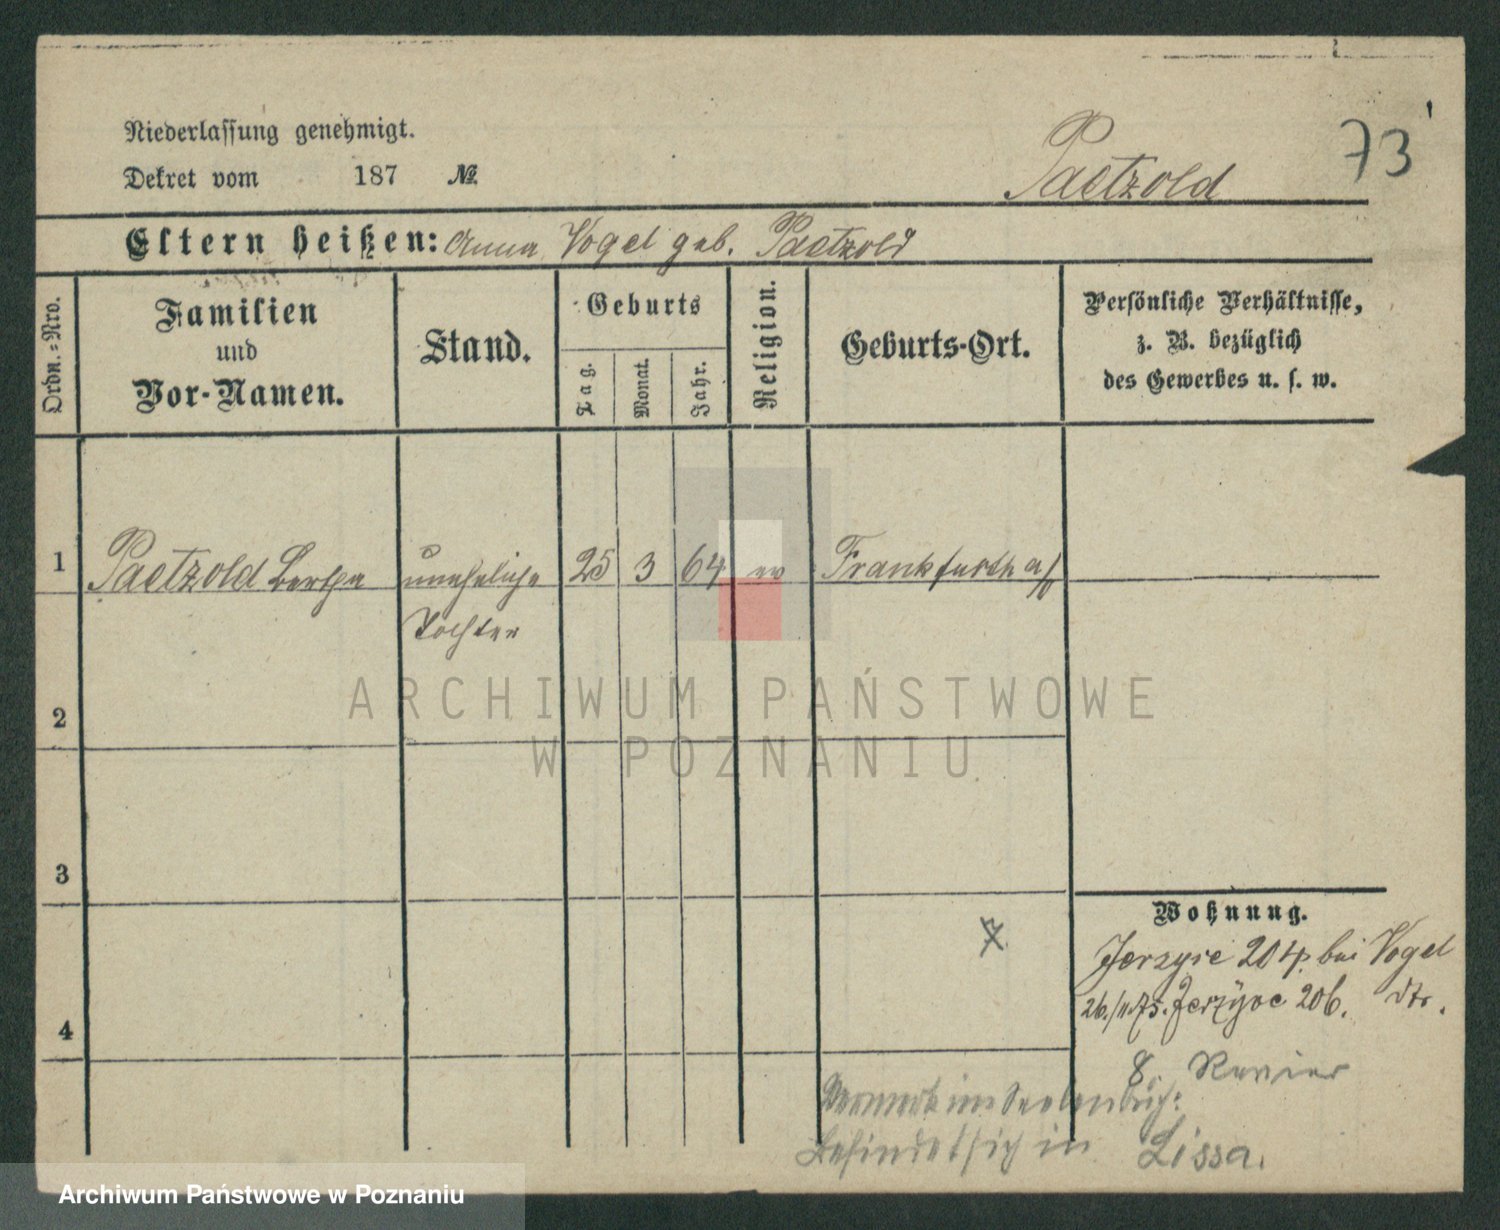 Niederlassung genehmigt.
Dekret vom 187 №
Paetzold
73
Eltern heißen: Anna Vogel geb. Paetzold
Ordn.-Nro.
Familien
und
Vor-Namen.
Stand.
Geburts
Tag.
Monat.
Jahr.
Religion.
Geburts-Ort.
Persönliche Verhältnisse,
z. B. bezüglich
des Gewerbes u. s. w.
1
Paetzold Bertha
uneheliche
Tochter
25
3
64
ev
Frankfurth a/O
2
ARCHIWUM PAŃSTWOWE
W POZNANIU
3
4
Wohnung.
Jerzyce 204. bei Vogel
Jerzyce 206.
8. Revier
Vermerk im Seelenbuch:
Befindet sich in Lissa.
Archiwum Państwowe w Poznaniu